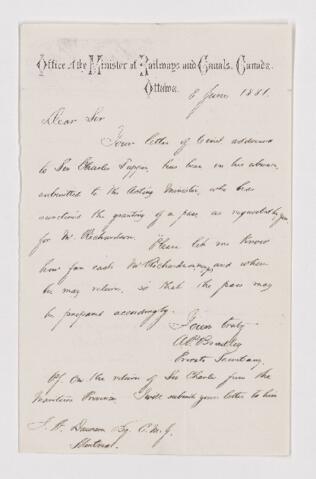 Office of the Minister of Railways and Canals, Canada.
Ottawa. 6 June 1881.
Dear Sir
Your letter of addressed
to Sir Charles Tupper, has been in his absence
submitted to the Acting Minister, who has
sanctioned the granting of a pass, as requested by you
for Mr. Richardson. Please let me know
how far east Mr Richardson and when
he may return, so that the pass may
be prepared accordingly.
Yours truly
Private Secretary
On the return of Sir Charles from the
Maritime Provinces I will submit your letter to him
Dawson Esq. C.M.G.
Montreal.